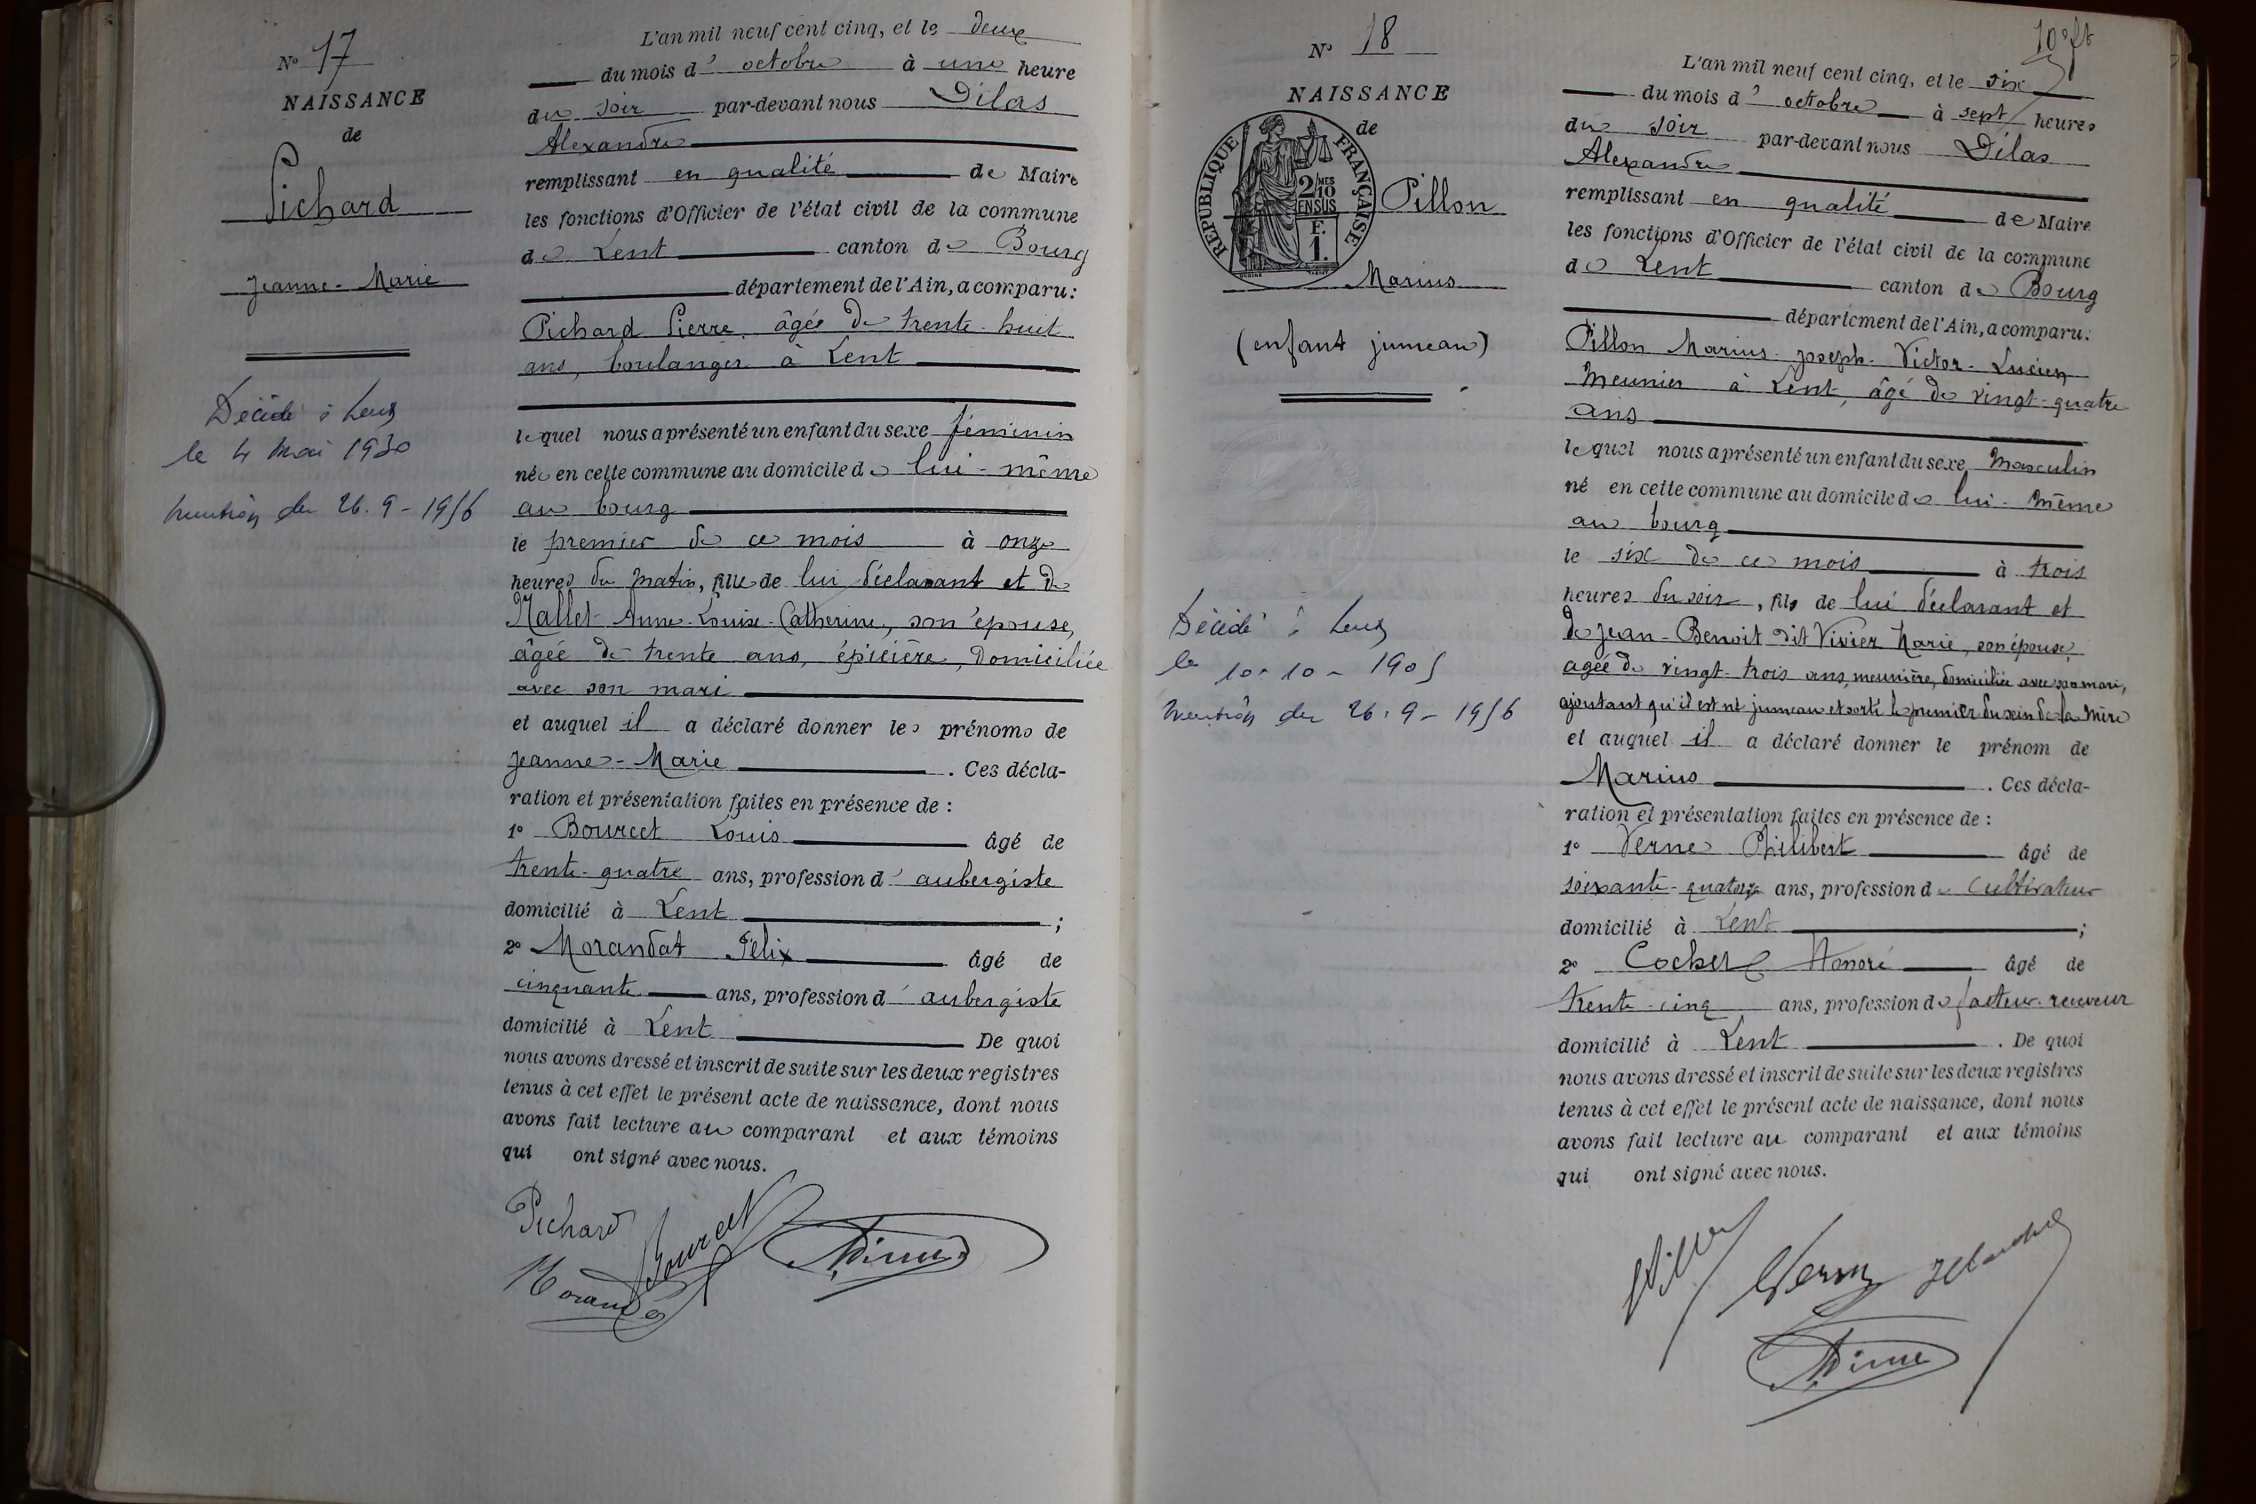 N° 17
NAISSANCE
de
Pichard
Jeanne-Marie
Décédé à Lent
le 4 mai 1930
Mention du 26.9-1956
L'an mil neuf cent cinq, et le deux
du mois d'octobre à une heure
du soir par-devant nous Dilas
Alexandre
remplissant en qualité de Maire
les fonctions d'Officier de l'état civil de la commune
de Lent canton de Bourg
département de l'Ain, a comparu:
Pichard Pierre, âgée de trente-huit
ans, boulanger à Lent
lequel nous a présenté un enfant du sexe féminin
née en cette commune au domicile de lui-même
au bourg
le premier de ce mois à onze
heures du matin, fille de lui déclarant et de
Mallet Anne-Louise-Catherine, son épouse,
âgée de trente ans, épicière, domiciliée
avec son mari
et auquel il a déclaré donner les prénoms de
Jeanne-Marie. Ces décla-
ration et présentation faites en présence de :
1° Bourcet Louis âgé de
trente-quatre ans, profession d'aubergiste
domicilié à Lent ;
2° Morandat Félix âgé de
cinquante ans, profession d'aubergiste
domicilié à Lent De quoi
nous avons dressé et inscrit de suite sur les deux registres
tenus à cet effet le présent acte de naissance, dont nous
avons fait lecture au comparant et aux témoins
qui ont signé avec nous.
Pichard Bourcet
N° 18
NAISSANCE
de
RÉPUBLIQUE FRANÇAISE
2/10 MES
EN SUS
F.
1.
Pillon
Marius
(enfant jumeau)
Décédé à Lent
le 10-10-1905
Mention du 26.9-1956
L'an mil neuf cent cinq, et le six
du mois d'octobre à sept heures
du soir par-devant nous Délas
Alexandre
remplissant en qualité de Maire
les fonctions d'Officier de l'état civil de la commune
de Lent canton de Bourg
département de l'Ain, a comparu:
Pillon Marius-Joseph-Victor-Lucien
Meunier à Lent, âgé de vingt-quatre
ans
lequel nous a présenté un enfant du sexe masculin
né en cette commune au domicile de lui-même
au bourg
le six de ce mois à trois
heures du soir, fils de lui déclarant et
de Jean-Benoit dit Vivier Marie, son épouse,
agée de vingt-trois ans, meunière, domiciliée avec son mari,
ajoutant qu'il est né jumeau et sorti le premier du sein de la mère
et auquel il a déclaré donner le prénom de
Marius. Ces décla-
ration et présentation faites en présence de :
1° Verne Philibert âgé de
soixante-quatorze ans, profession de cultivateur
domicilié à Lent ;
2° Honoré âgé de
trente-cinq ans, profession de facteur-receveur
domicilié à Lent. De quoi
nous avons dressé et inscrit de suite sur les deux registres
tenus à cet effet le présent acte de naissance, dont nous
avons fait lecture au comparant et aux témoins
qui ont signé avec nous.